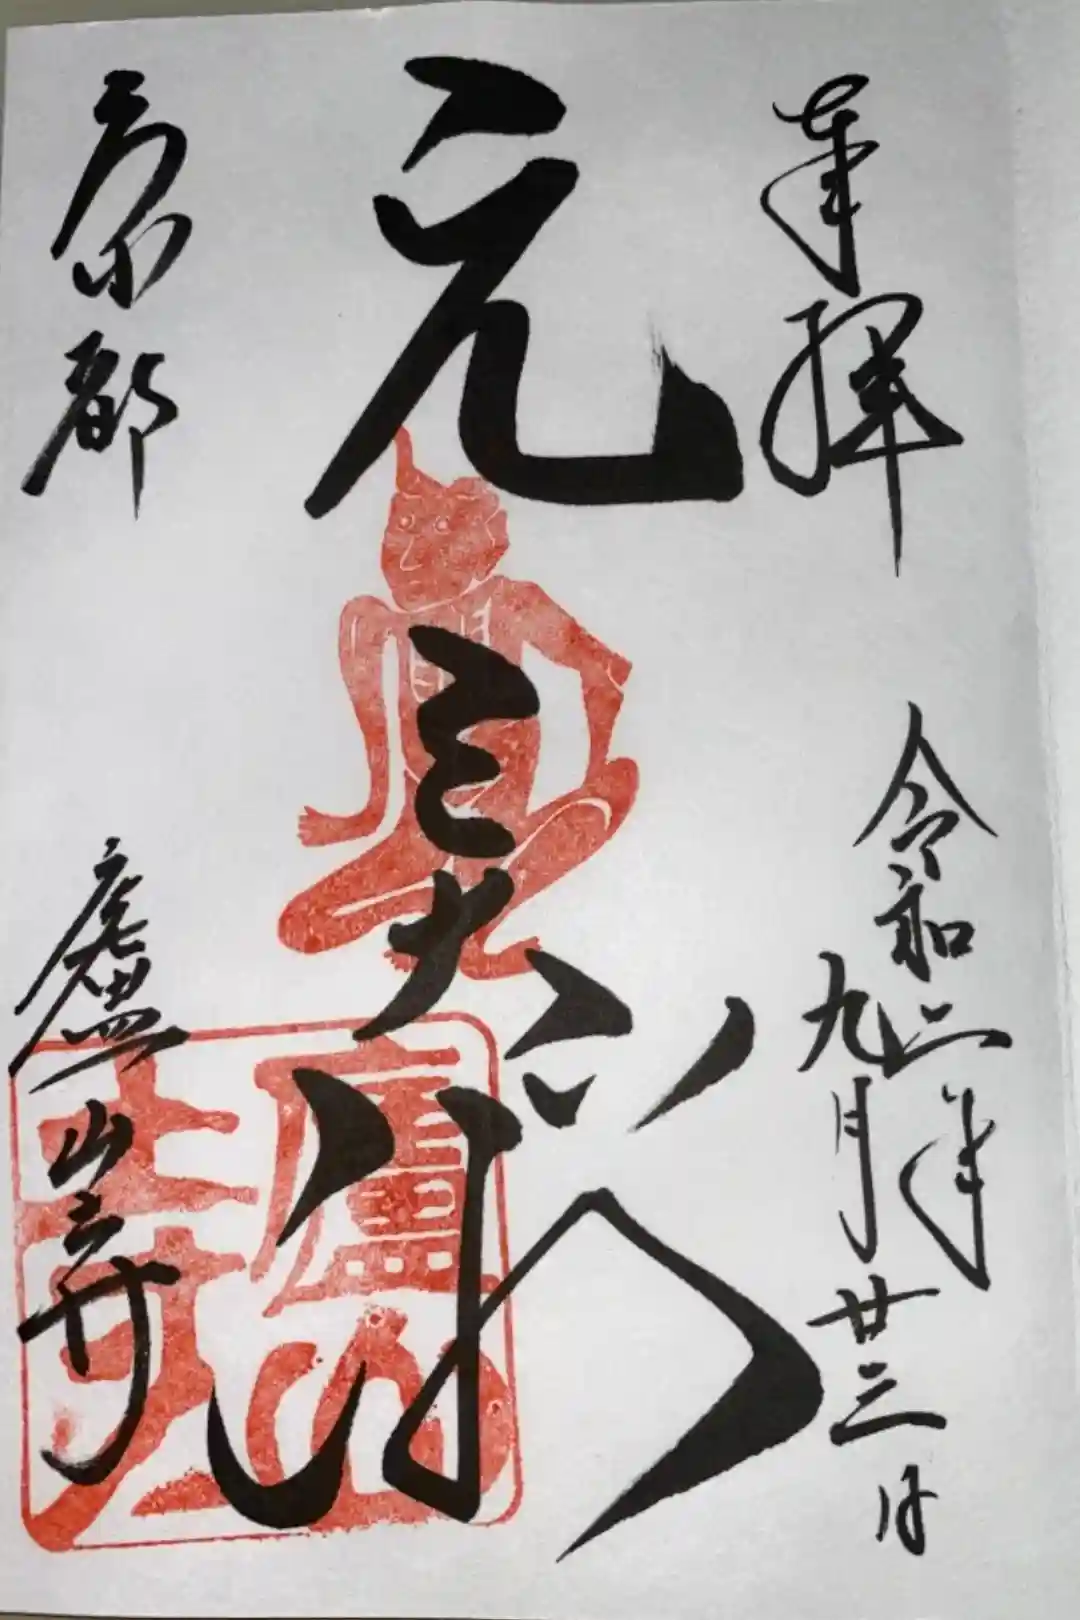 奉拝
令和二年
九月廿三日
元三大師
京都 廬山寺
廬山
寺